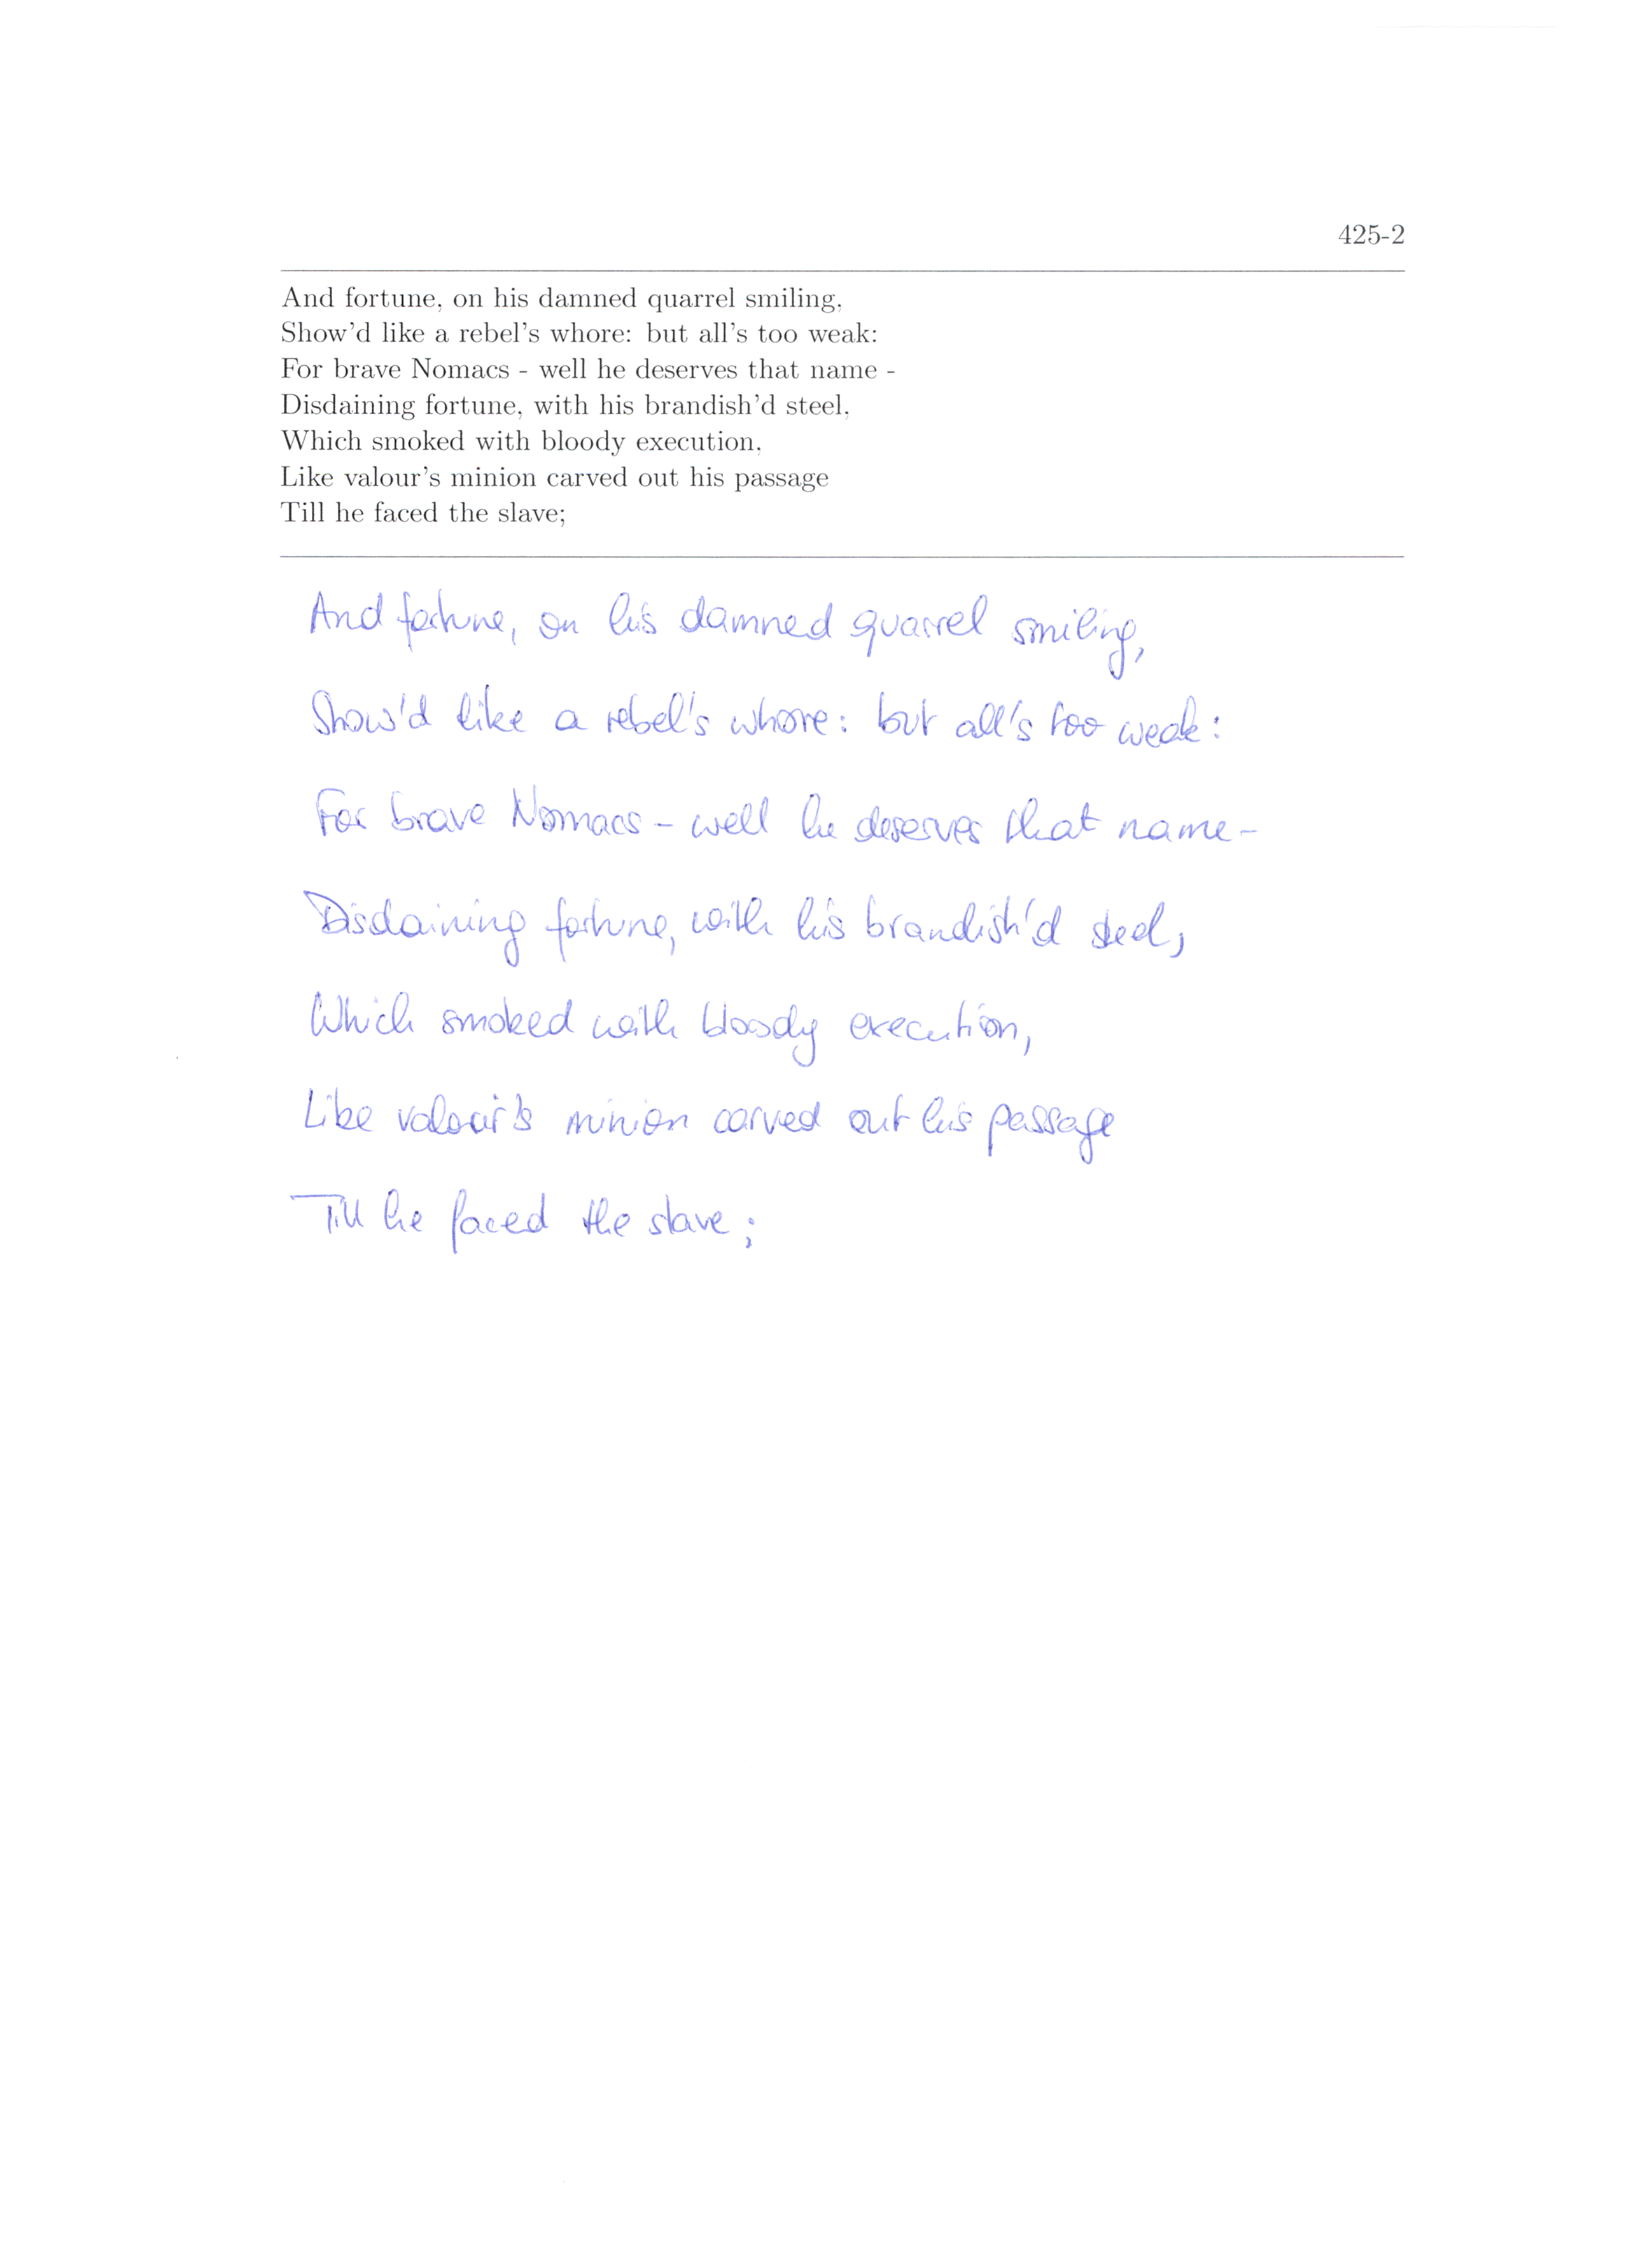 425-2
And fortune, on his damned quarrel smiling,
Show'd like a rebel's whore: but all's too weak:
For brave Nomacs - well he deserves that name -
Disdaining fortune, with his brandish'd steel,
Which smoked with bloody execution,
Like valour's minion carved out his passage
Till he faced the slave;
And fortune, on his damned quarrel smiling,
Show'd like a rebel's whore: but all's too weak:
For brave Nomacs - well he deserves that name -
Disdaining fortune, with his brandish'd steel,
Which smoked with bloody execution,
Like valour's minion carved out his passage
Till he faced the slave;